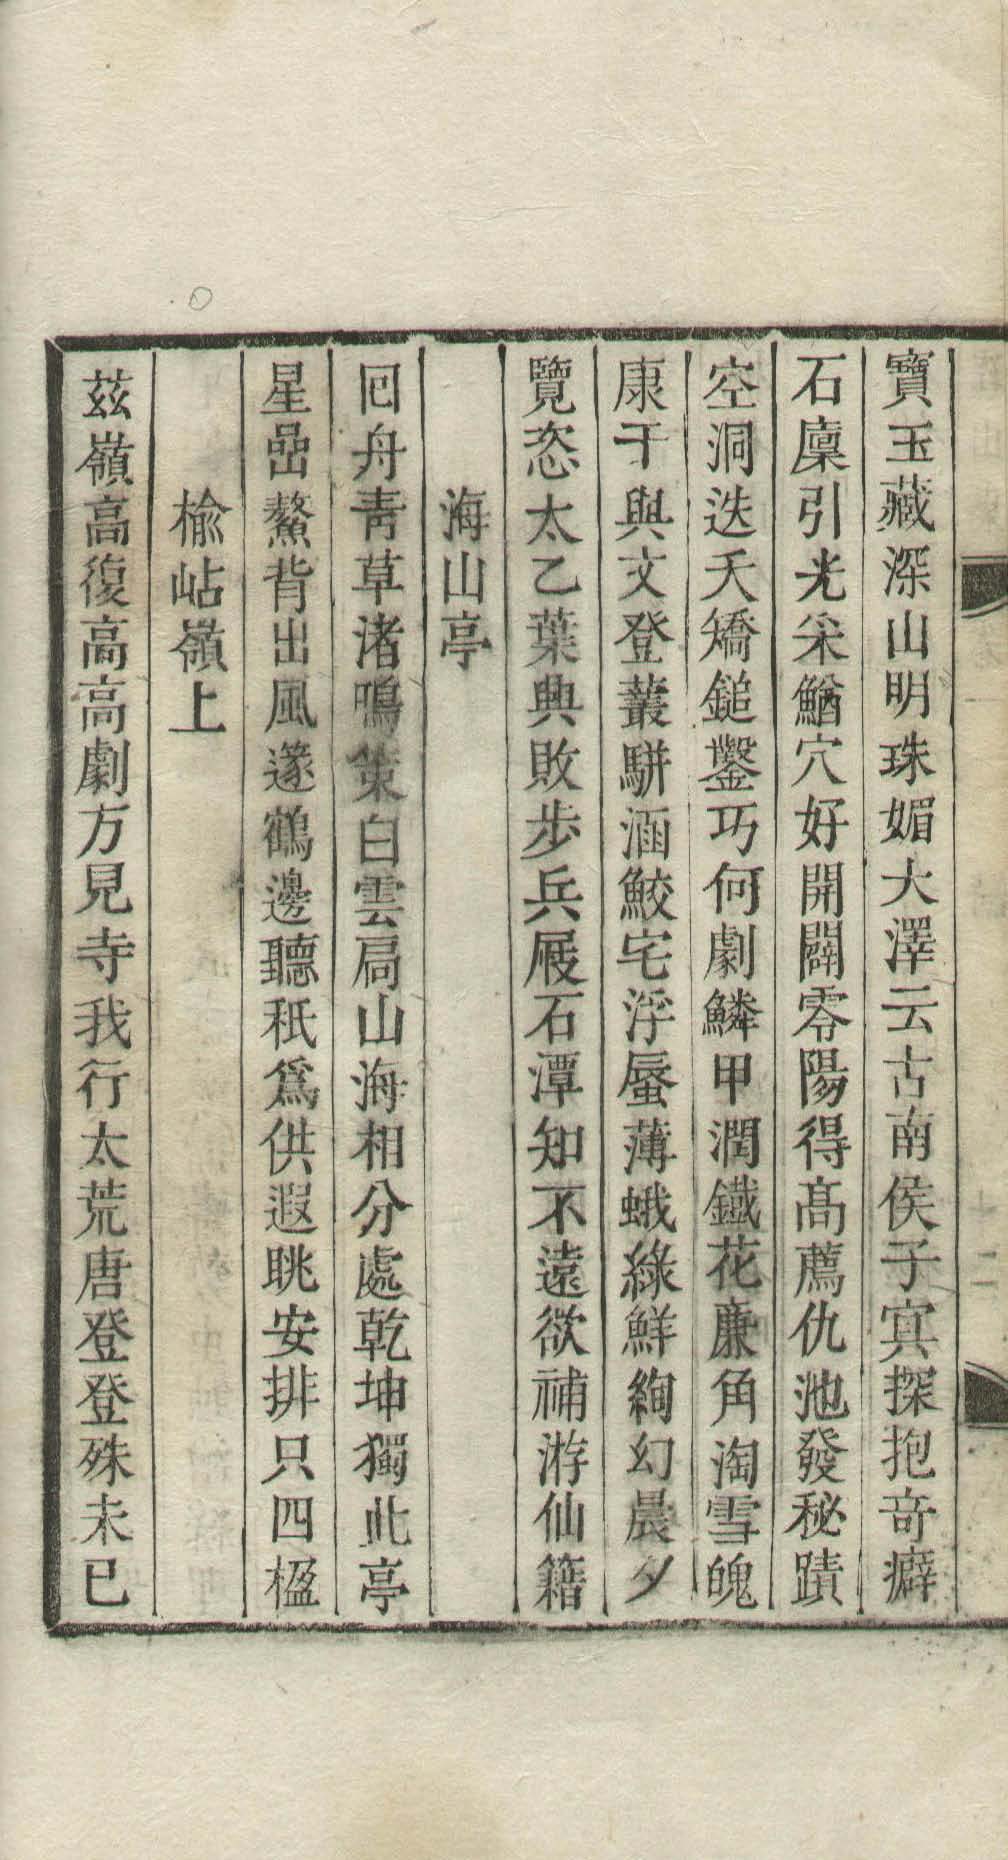 寶玉藏深山明珠媚大澤云古南侯子冥探抱奇癖
石廩引光采鰌穴好開闢零陽得高薦仇池發秘蹟
空洞迭夭矯鎚鑿巧何劇鱗甲潤鐵花廉角淘雪魄
康干與文登叢駢涵鮫宅浮蜃薄蛾綠鮮絢幻晨夕
覽恣太乙葉典敗步兵屐石潭知不遠欲補游仙籍
海山亭
回舟青草渚鳴策白雲扃山海相分處乾坤獨此亭
星嵒鰲背出風篴鶴邊聽秖爲供遐眺安排只四楹
楡岾嶺上
茲嶺高復高高劇方見寺我行太荒唐登登殊未已